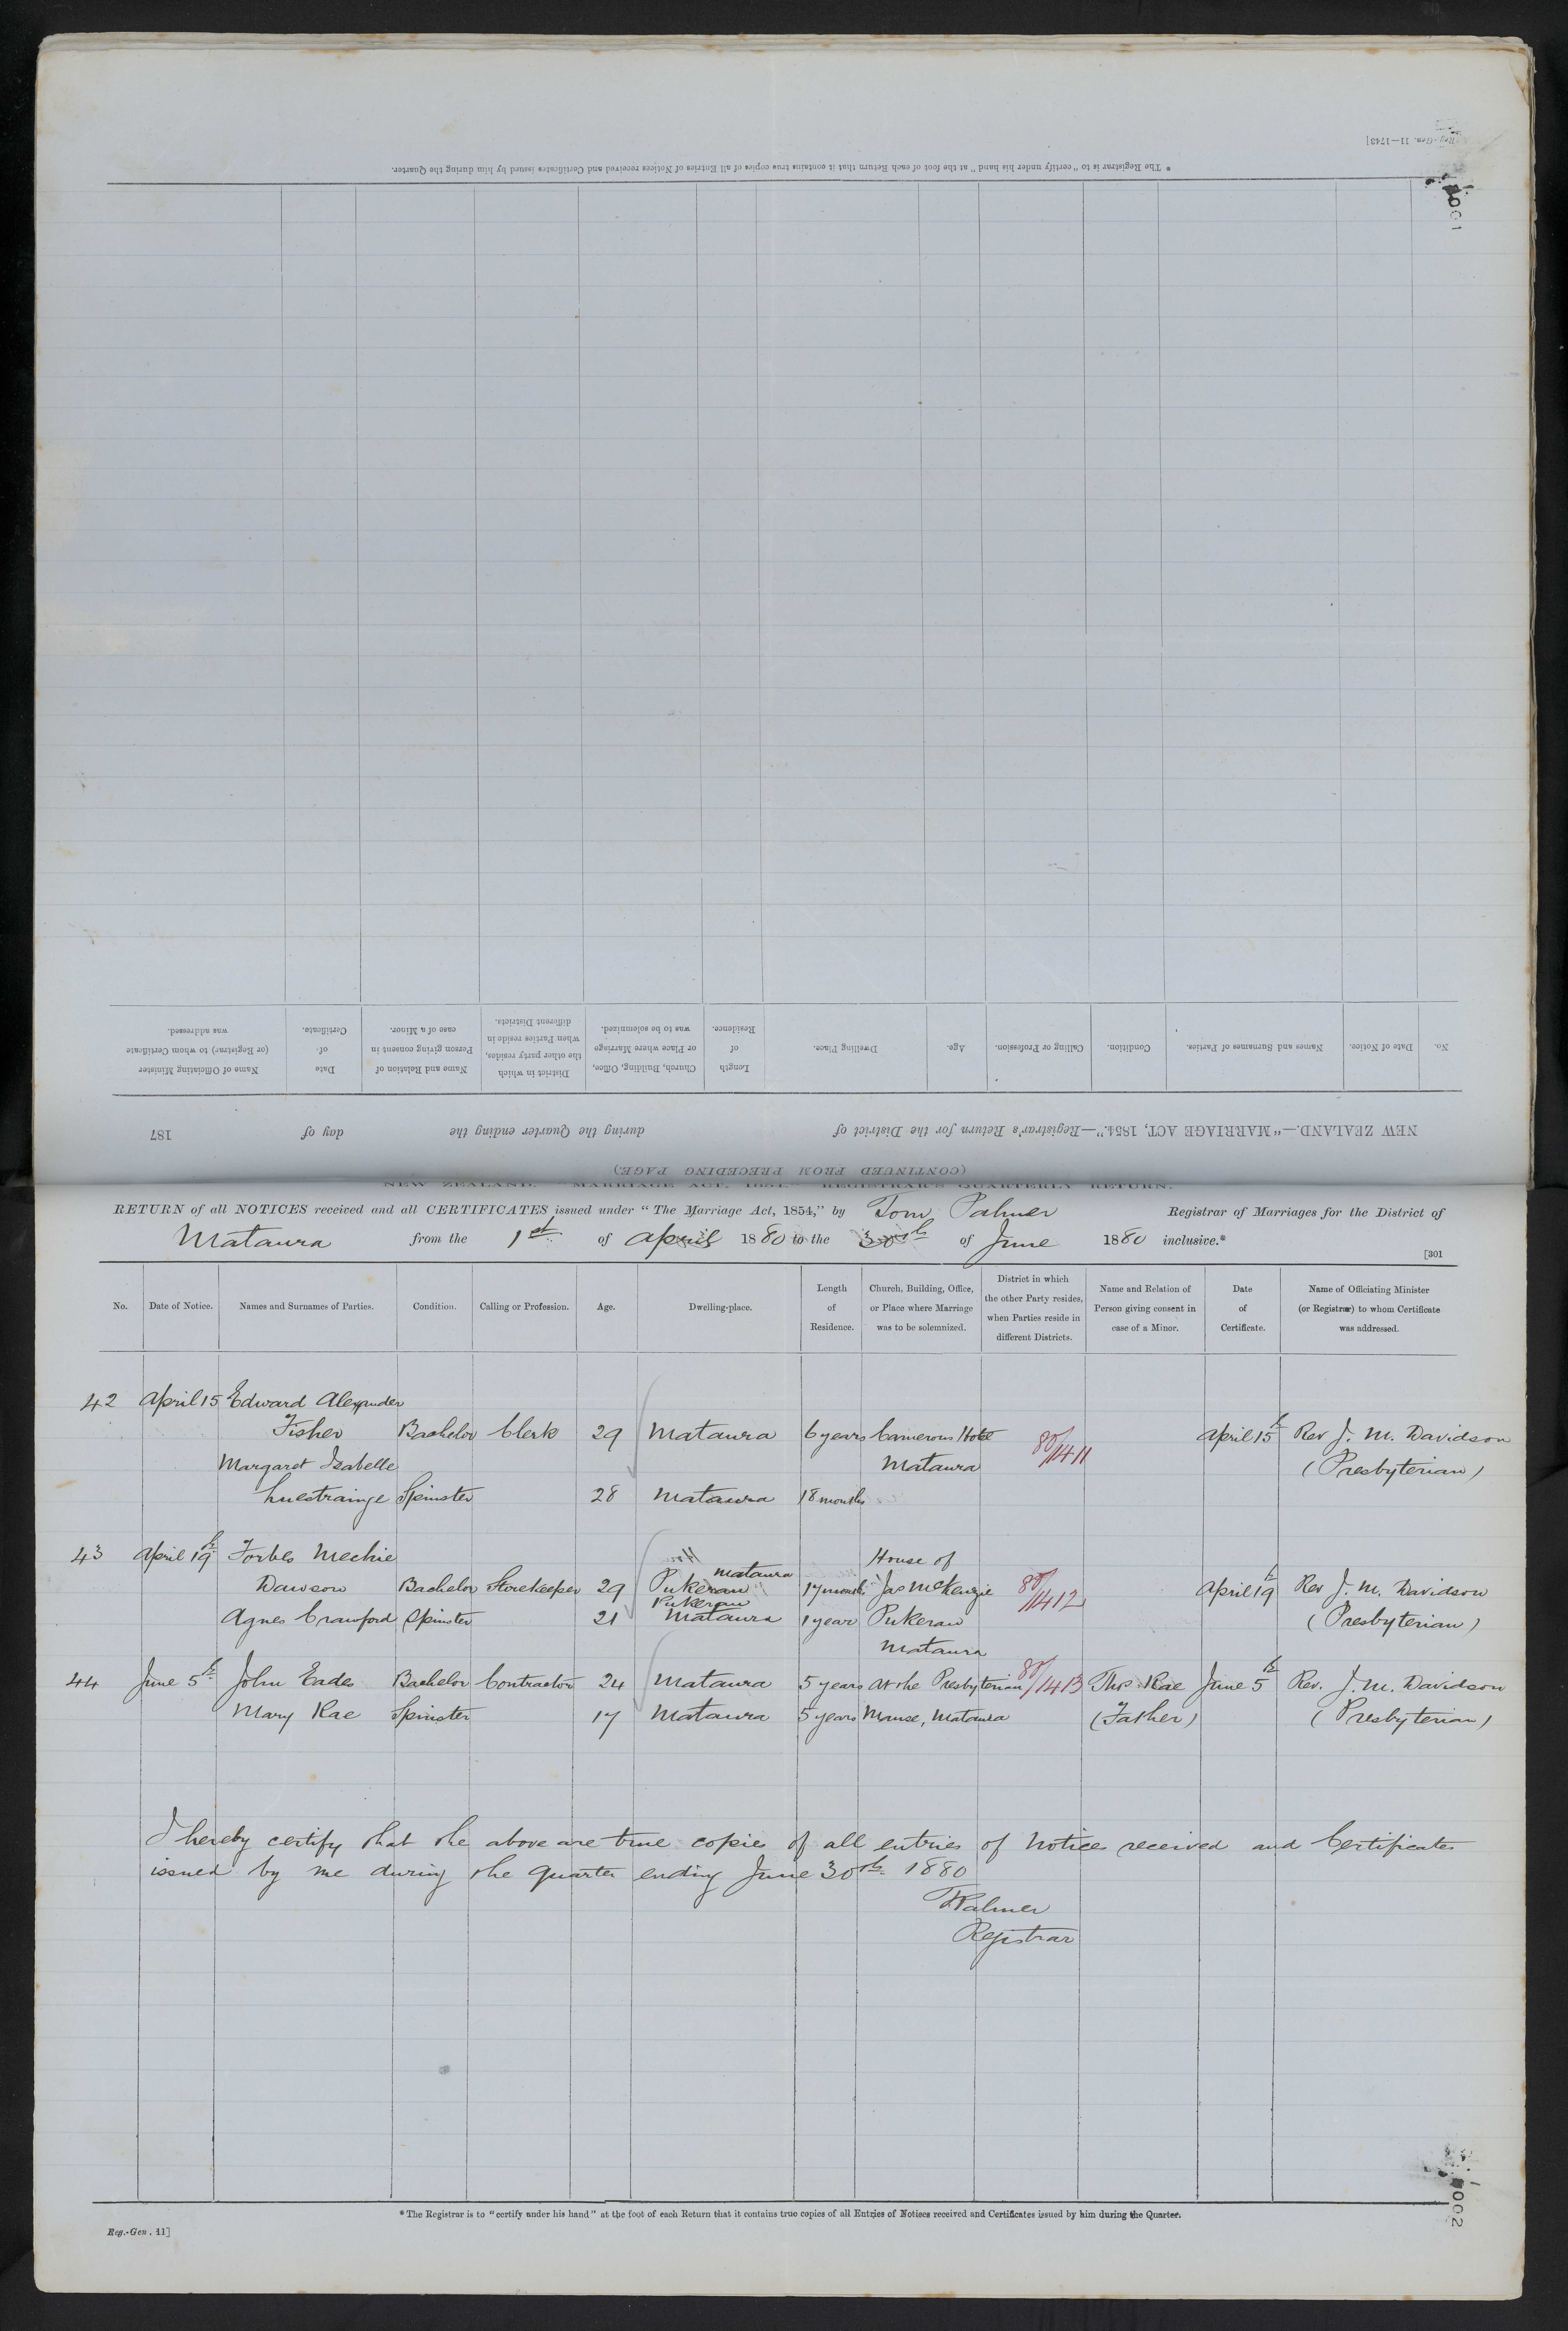 Reg.-Gen. 11—1743]
* The Registrar is to "certify under his hand" at the foot of each Return that it contains true copies of all Entries of Notices received and Certificates issued by him during the Quarter.
1001
No.
Date of Notice.
Names and Surnames of Parties.
Condition.
Calling or Profession.
Age.
Dwelling Place.
Length of Residence.
Church, Building, Office, or Place where Marriage was to be solemnized.
District in which the other party resides, when Parties reside in different Districts.
Name and Relation of Person giving consent in case of a Minor.
Date of Certificate.
Name of Officiating Minister (or Registrar) to whom Certificate was addressed.
NEW ZEALAND.—"MARRIAGE ACT, 1854."—Registrar's Return for the District of during the Quarter ending the day of 187
(CONTINUED FROM PRECEDING PAGE.)
NEW ZEALAND. "MARRIAGE ACT, 1854." REGISTRAR'S QUARTERLY RETURN.
RETURN of all NOTICES received and all CERTIFICATES issued under "The Marriage Act, 1854," by Tom Palmer Registrar of Marriages for the District of
Mataura from the 1st of April 1880 to the 30th of June 1880 inclusive.*
[301
No.
Date of Notice.
Names and Surnames of Parties.
Condition.
Calling or Profession.
Age.
Dwelling-place.
Length of Residence.
Church, Building, Office, or Place where Marriage was to be solemnized.
District in which the other Party resides, when Parties reside in different Districts.
Name and Relation of Person giving consent in case of a Minor.
Date of Certificate.
Name of Officiating Minister (or Registrar) to whom Certificate was addressed.
42 April 15 Edward Alexander
Fisher Bachelor Clerk 29 Mataura 6 years Camerons Hotel 80/1411 April 15th Rev J. M. Davidson
Margaret Isabelle Mataura (Presbyterian)
Spinster 28 Mataura 18 months
43 April 19th Forbes Mechie House of
Mataura
Dawson Bachelor Storekeeper 29 Pukerau 17 months Jas McKenzie 80/1412 April 19th Rev J. M. Davidson
Pukerau
Agnes Crawford Spinster 21 Mataura 1 year Pukerau (Presbyterian)
Mataura
44 June 5th John Eade Bachelor Contractor 24 Mataura 5 years At the Presbyterian 80/1413 Thos. Rae June 5th Rev. J. M. Davidson
Mary Rae Spinster 17 Mataura 5 years Manse, Mataura (Father) (Presbyterian)
I hereby certify that the above are true copies of all entries of Notices received and Certificates
issued by me during the quarter ending June 30th 1880
TPalmer
Registrar
* The Registrar is to "certify under his hand" at the foot of each Return that it contains true copies of all Entries of Notices received and Certificates issued by him during the Quarter.
Reg.-Gen. 11]
1002